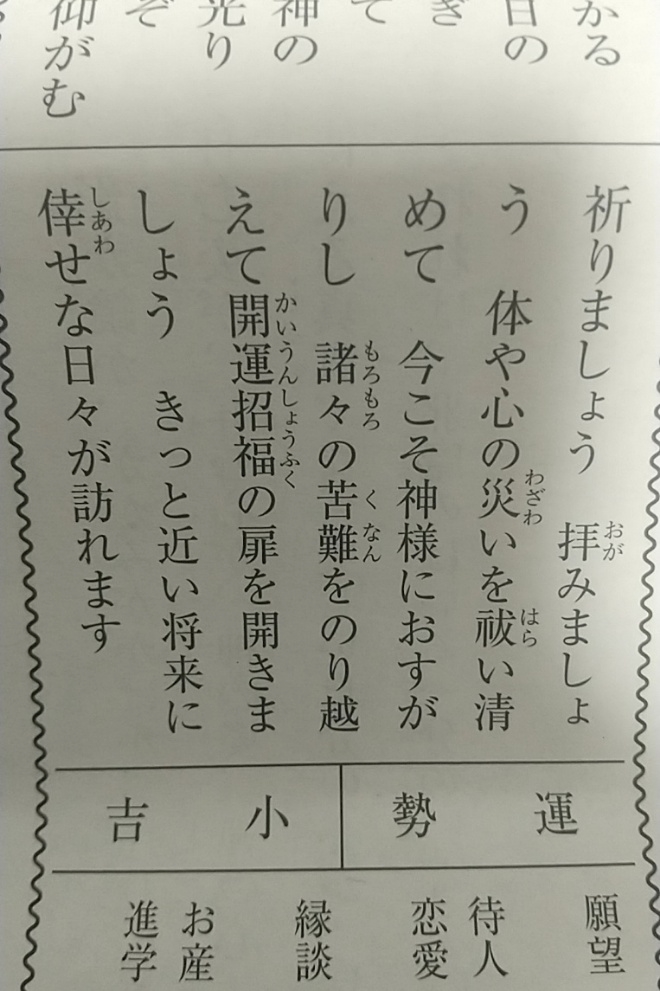 かる
日の
ぎ
て
神の
光り
ぞ
仰がむ
祈りましょう　拝みましょ
う　体や心の災いを祓い清
めて　今こそ神様におすが
りし　諸々の苦難をのり越
えて開運招福の扉を開きま
しょう　きっと近い将来に
倖せな日々が訪れます
おが
わざわ
はら
もろもろ
くなん
かいうんしょうふく
しあわ
運勢
小吉
願望
待人
恋愛
縁談
お産
進学